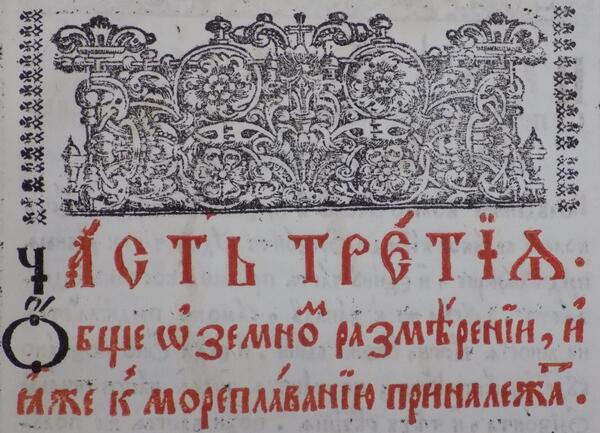 ЧА́СТЬ ТРЕ́ТЇѦ.
Ѻ҆́бще ѡ҆ земноⷨ размѣ́ренїи, и҆
ꙗ҆́же к̾ морепла́ванїю приналежаⷮ.